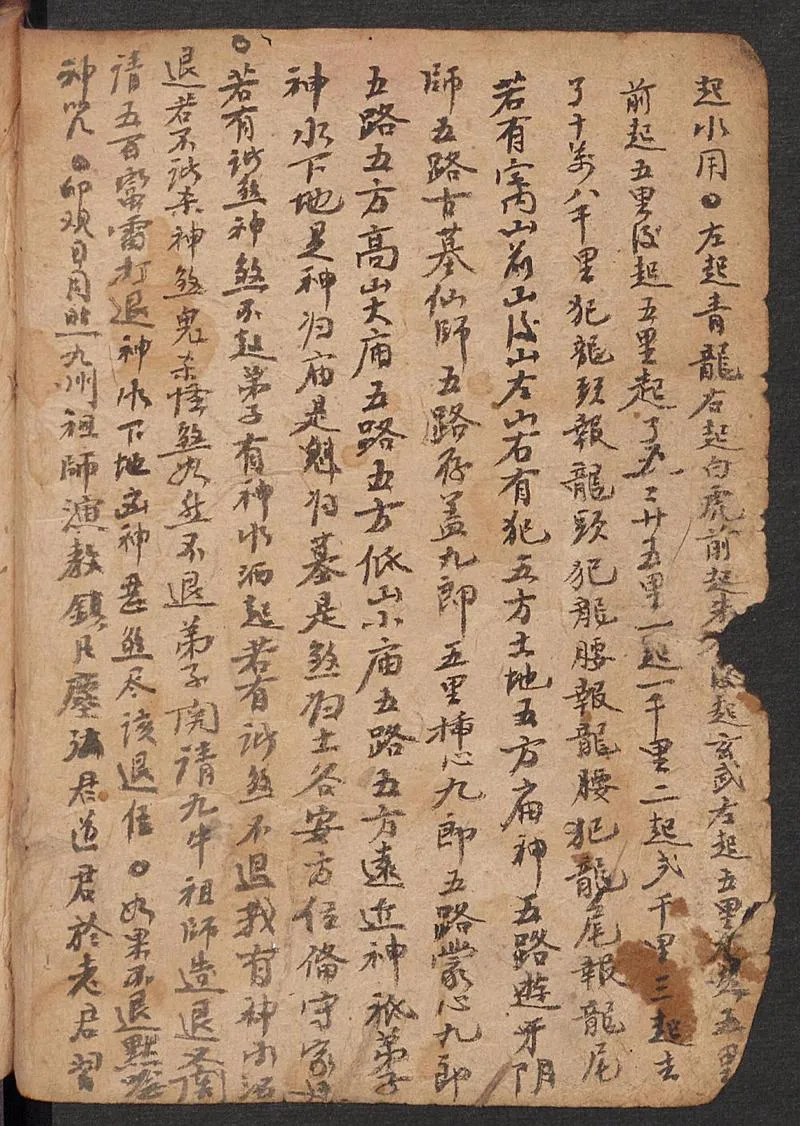 起水用。左起青龍右起白虎前起朱起玄武左起五里五里
前起五里後起五里起了廿五里一起一千里二起弍千里三起去
了十萬八千里犯龍頭報龍頭犯龍腰報龍腰犯龍尾報龍尾
若有山前山後山左山右有犯五方土地五方廟神五路遊牙阴
師五路古墓仙師五路九郎五里挿心九郎五路蒙心九郎
五路五方高山大庙五路五方低山小庙五路五方遠近神祇弟子
神水下地是神归庙是魁归墓是煞归土各安方位俻守家
。若有煞神煞不起弟子有神水洒起若有煞不退我有神水洒
退若不神煞鬼怪煞不退弟子請九牛祖師造退
請五百雷打退神水下地神煞尽該退位。如果不退
神咒。仰观日月照九州祖師演教鎮凡塵君道君於老君習